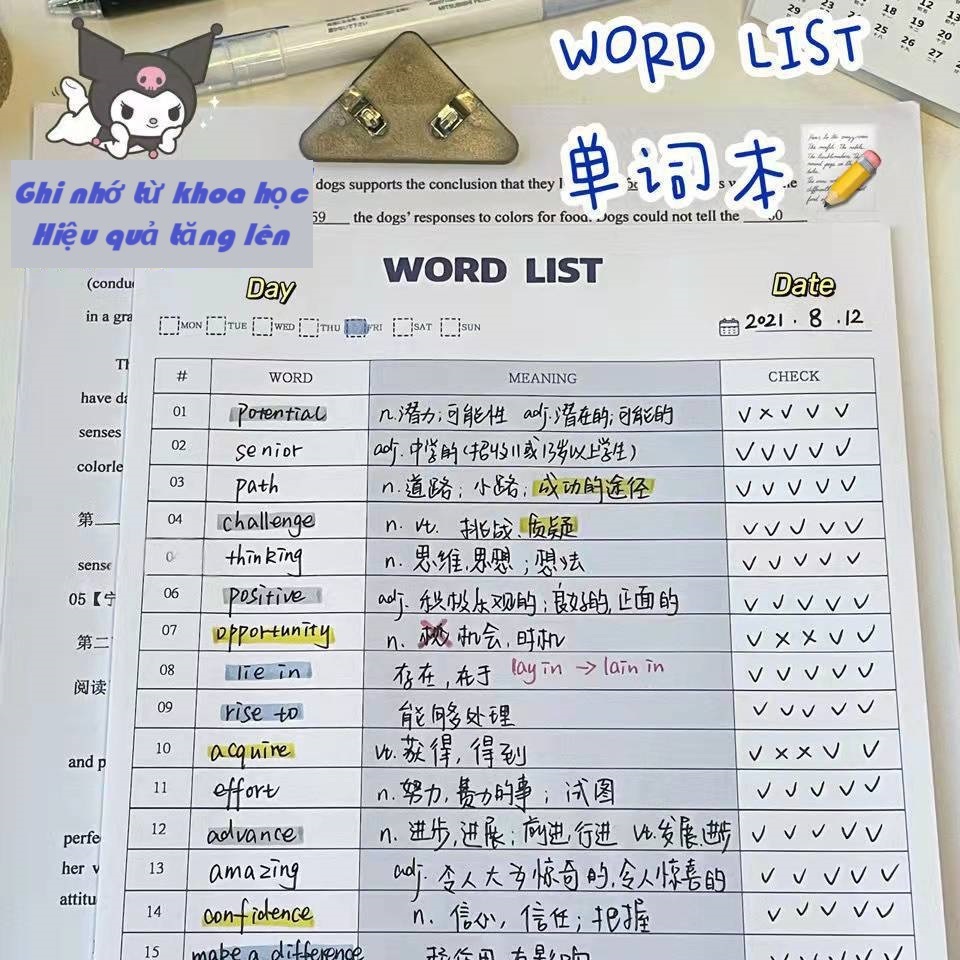 WORD LIST
单词本
Ghi nhớ từ khoa học
Hiệu quả tăng lên
dogs supports the conclusion that they
59 the dogs' responses to colors for food. Dogs could not tell the 60
WORD LIST
Day
Date
MON TUE WED THU FRI SAT SUN
2021.8.12
# WORD MEANING CHECK
01 potential n.潜力;可能性 adj.潜在的;可能的 ✓×✓✓✓
02 senior adj.中学的(招收11或13岁以上学生) ✓✓✓✓✓
03 path n.道路;小路;成功的途径 ✓✓✓✓✓
04 challenge n. vt. 挑战、质疑 ✓✓✓✓✓
0 thinking n.思维,思想;想法 ✓✓✓✓✓
06 positive adj.积极乐观的;良好的,正面的 ✓✓✓✓✓
07 opportunity n. 机会,时机 ✓××✓✓
08 lie in 存在,在于 lay in → lain in ✓✓✓✓✓
09 rise to 能够处理 ✓✓✓✓✓
10 acquire vt.获得,得到 ✓××✓✓
11 effort n.努力,费力的事;试图 ✓✓✓✓✓
12 advance n.进步,进展;前进,行进 vt.发展,进步 ✓✓✓✓✓
13 amazing adj.令人大为惊奇的,令人惊喜的 ✓✓✓✓✓
14 confidence n.信心,信任;把握 ✓✓✓✓✓
15 make a difference
(condu
in a gra
Th
have da
senses
colorle
第
sense
05【宁
第二
阅读
and p
perfe
her v
attitu